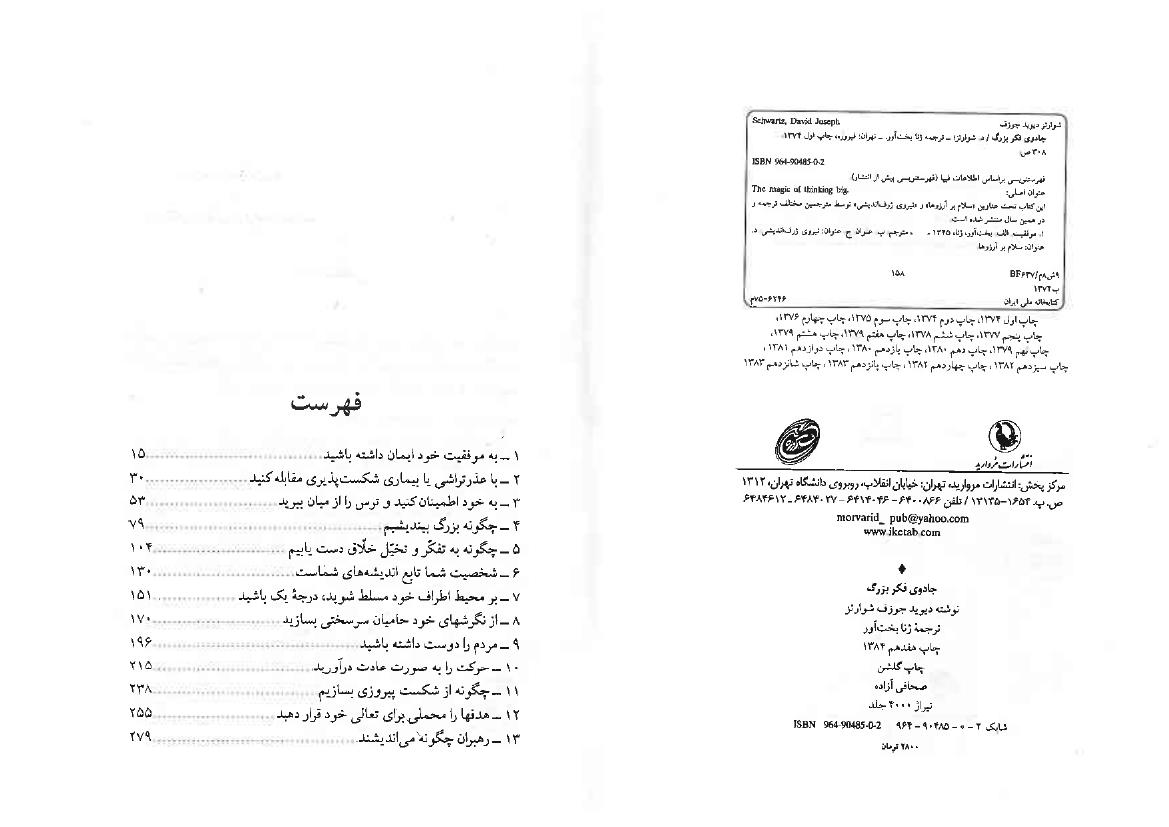 شوارتز دیوید جوزف Schwartz, David Joseph
جادوی فکر بزرگ / د. شوارتز؛ ـ ترجمه ژنا بخت‌آور. ـ تهران: فیروزه، چاپ اول ۱۳۷۴.
۳۰۸ ص.
ISBN 964-90485-0-2
فهرستنویسی براساس اطلاعات فیپا (فهرستنویسی پیش از انتشار).
عنوان اصلی: The magic of thinking big.
این کتاب تحت عناوین «سلام بر آرزوها» و «نیروی ژرف‌اندیشی» توسط مترجمین مختلف ترجمه و
در همین سال منتشر شده است.
۱. موفقیت. الف. بخت‌آور، ژنا، ۱۳۴۵ ـ ، مترجم. ب. عنوان. ج. عنوان: نیروی ژرف‌اندیشی. د.
عنوان: سلام بر آرزوها.
۹ش۸م/BF۶۳۷ ۱۵۸
ب۱۳۷۴
کتابخانه ملی ایران م۷۵-۶۲۴۶
چاپ اول ۱۳۷۴، چاپ دوم ۱۳۷۴، چاپ سوم ۱۳۷۵، چاپ چهارم ۱۳۷۶،
چاپ پنجم ۱۳۷۷، چاپ ششم ۱۳۷۸، چاپ هفتم ۱۳۷۹، چاپ هشتم ۱۳۷۹،
چاپ نهم ۱۳۷۹، چاپ دهم ۱۳۸۰، چاپ یازدهم ۱۳۸۰، چاپ دوازدهم ۱۳۸۱،
چاپ سیزدهم ۱۳۸۲، چاپ چهاردهم ۱۳۸۲، چاپ پانزدهم ۱۳۸۳، چاپ شانزدهم ۱۳۸۳
انتشارات مروارید
مرکز پخش: انتشارات مروارید، تهران: خیابان انقلاب، روبروی دانشگاه تهران، ۱۳۱۲
ص.پ. ۱۶۵۴-۱۳۱۴۵ / تلفن ۶۴۰۰۸۶۶ - ۶۴۱۴۰۴۶ - ۶۴۸۴۰۲۷ ـ ۶۴۸۴۶۱۲
morvarid_ pub@yahoo.com
www.iketab.com
جادوی فکر بزرگ
نوشته دیوید جوزف شوارتز
ترجمهٔ ژنا بخت‌آور
چاپ هفدهم ۱۳۸۴
چاپ گلشن
صحافی آزاده
تیراژ ۴۰۰۰ جلد
شابک ۲ - ۰ - ۹۰۴۸۵ - ۹۶۴ ISBN 964-90485-0-2
۲۸۰۰ تومان
فهرست
۱ ـ به موفقیت خود ایمان داشته باشید ۱۵
۲ ـ با عذرتراشی یا بیماری شکست‌پذیری مقابله کنید ۳۰
۳ ـ به خود اطمینان کنید و ترس را از میان ببرید ۵۳
۴ ـ چگونه بزرگ بیندیشیم ۷۹
۵ ـ چگونه به تفکّر و تخیّل خلّاق دست یابیم ۱۰۴
۶ ـ شخصیت شما تابع اندیشه‌های شماست ۱۳۰
۷ ـ بر محیط اطراف خود مسلط شوید، درجهٔ یک باشید ۱۵۱
۸ ـ از نگرشهای خود حامیان سرسختی بسازید ۱۷۰
۹ ـ مردم را دوست داشته باشید ۱۹۶
۱۰ ـ حرکت را به صورت عادت درآورید ۲۱۵
۱۱ ـ چگونه از شکست پیروزی بسازیم ۲۳۸
۱۲ ـ هدفها را محملی برای تعالی خود قرار دهید ۲۵۵
۱۳ ـ رهبران چگونه می‌اندیشند ۲۷۹